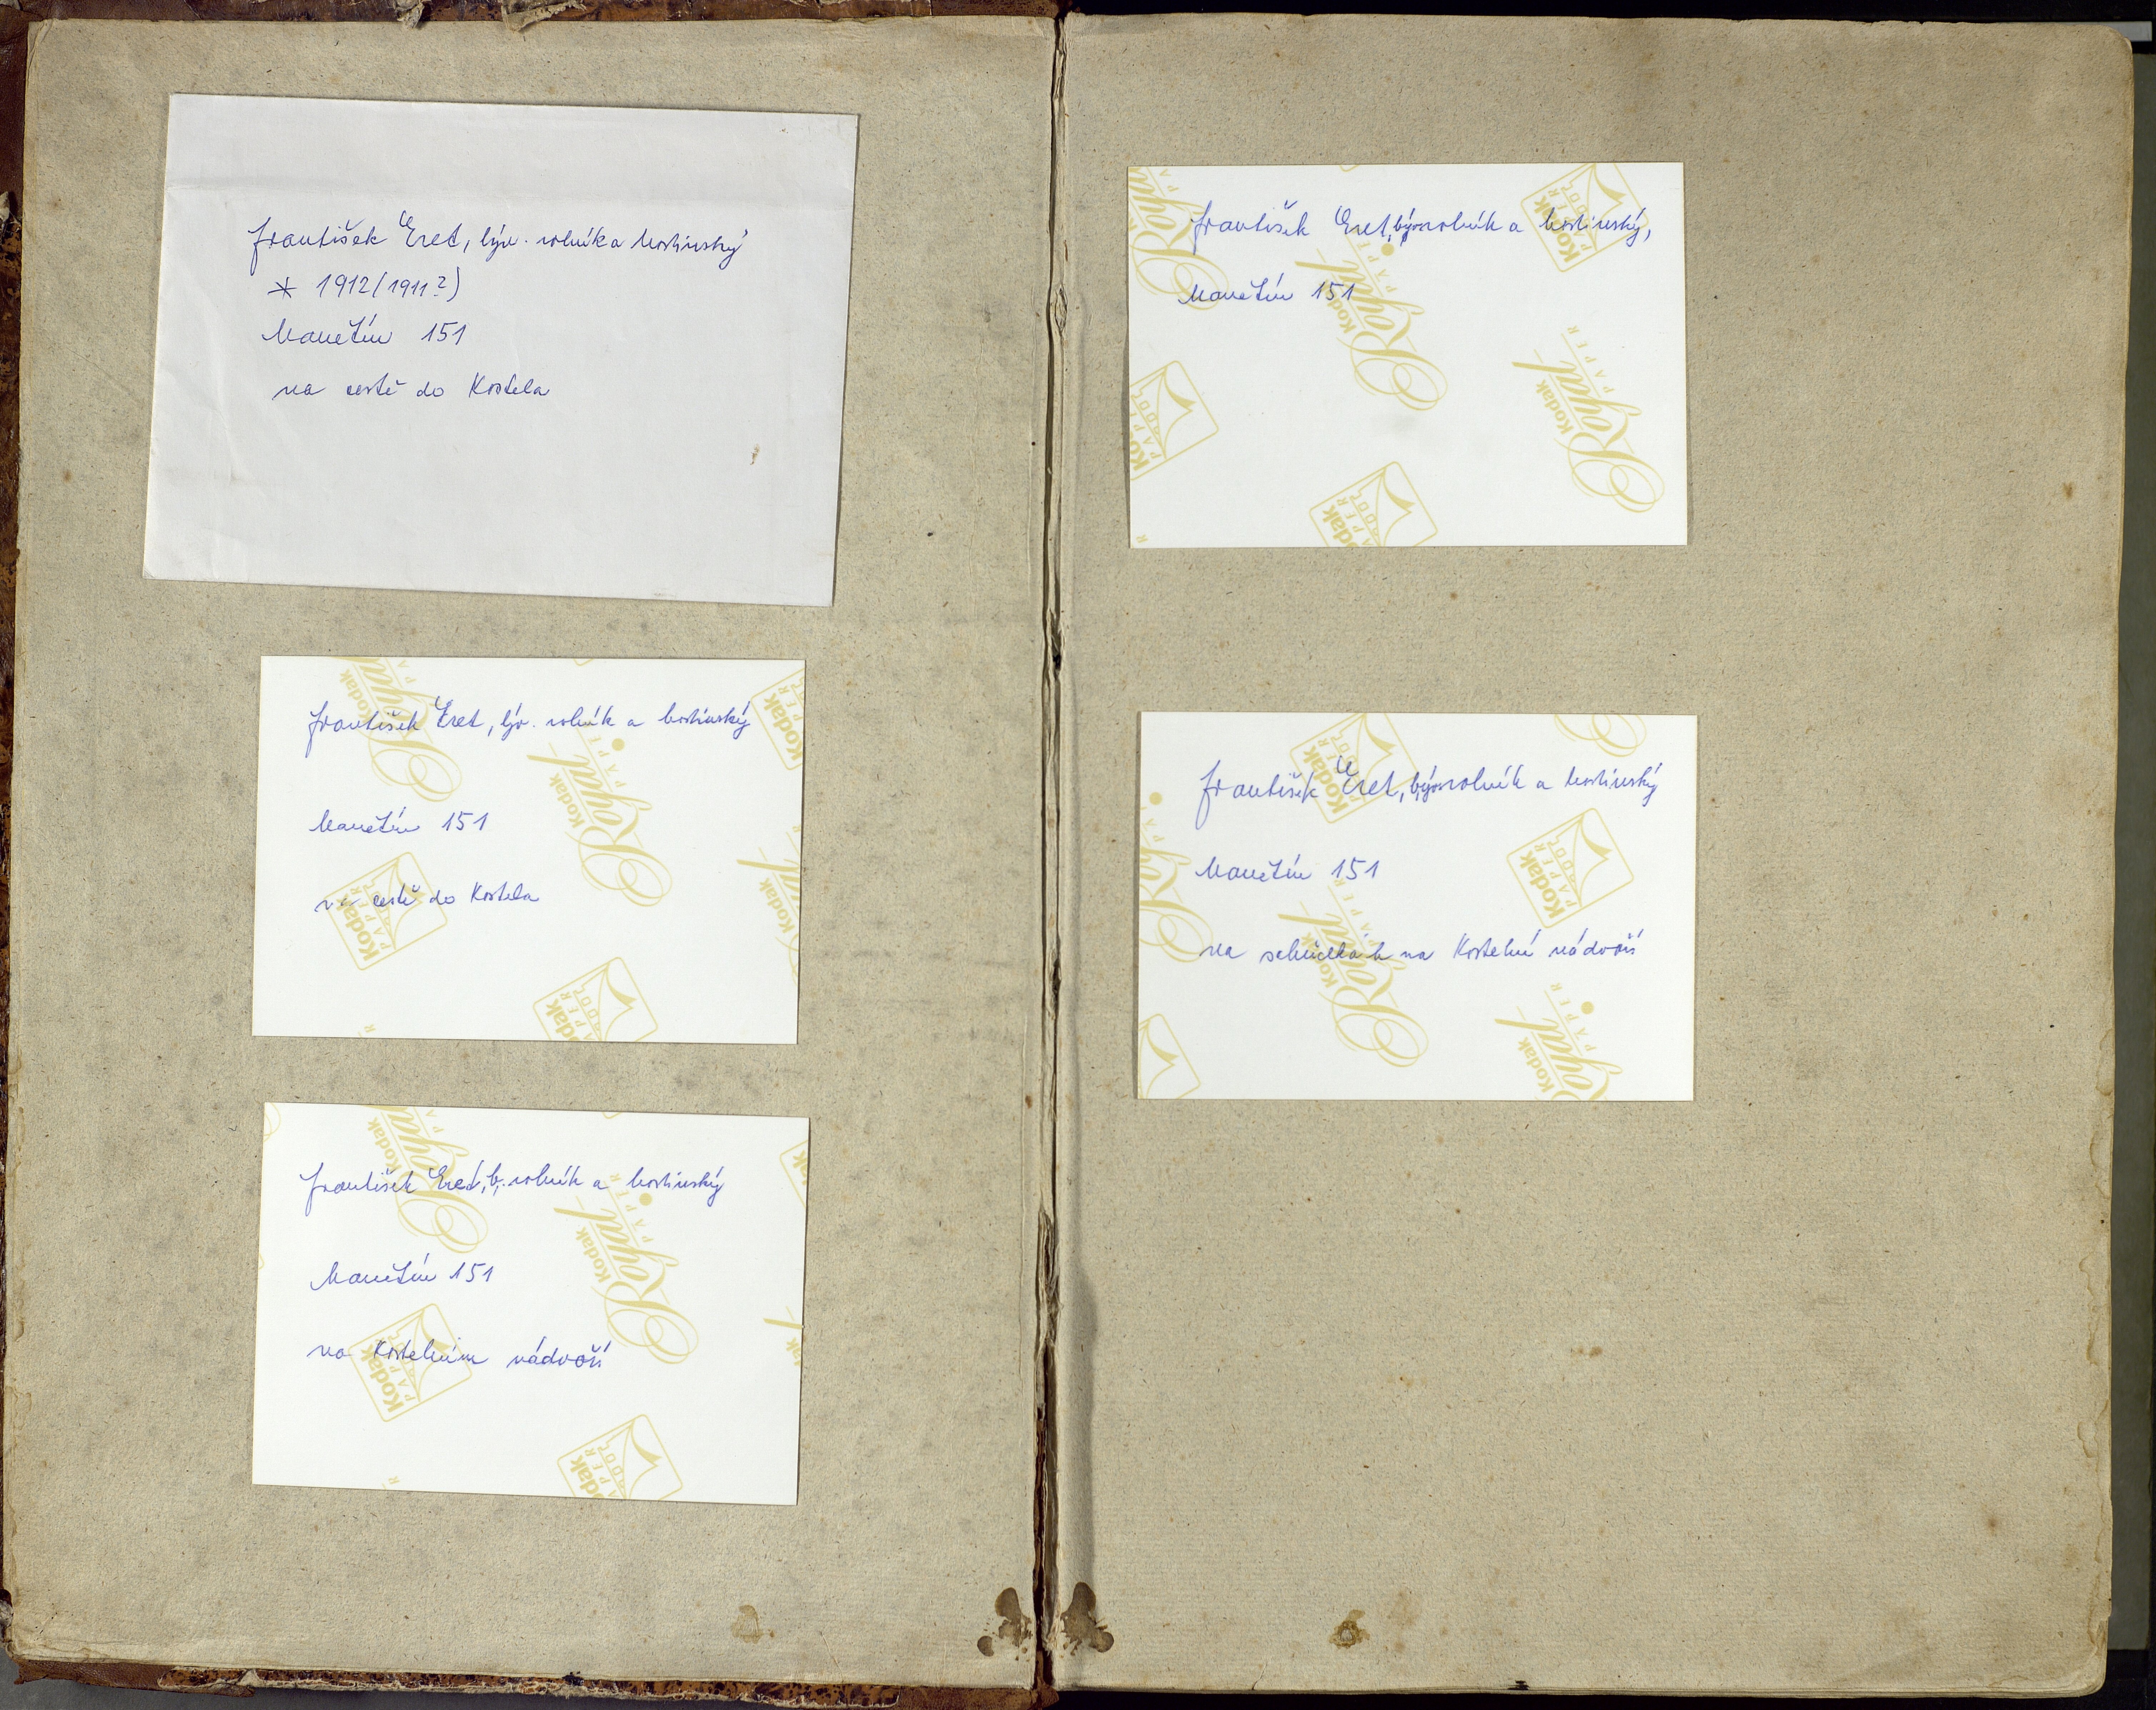 František Eret, býv. rolník a hostinský
* 1912 (1911?)
Manětín 151
na cestě do Kostela
František Eret, býv. rolník a hostinský
Manětín 151
na cestě do Kostela
František Eret, b. rolník a hostinský
Manětín 151
na Kostelním nádvoří
František Eret, býv. rolník a hostinský,
Manětín 151
František Eret, býv. rolník a hostinský
Manětín 151
na schůdkách na Kostelní nádvoří
Kodak
Royal
PAPER